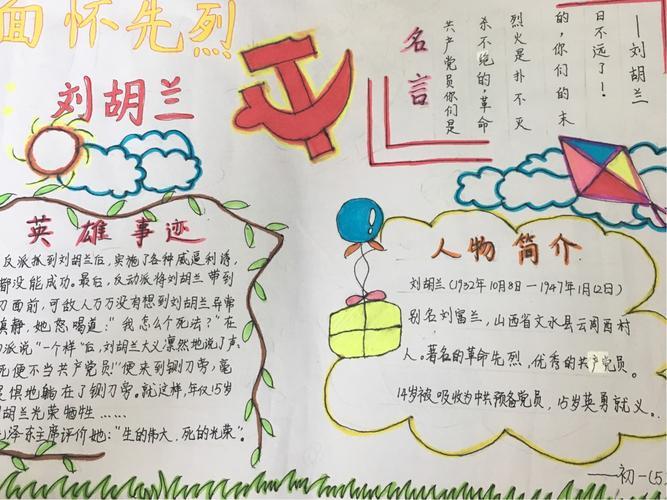 面怀先烈
刘胡兰
名言
共产党员你们是
杀不绝的，革命
烈火是扑不灭
的，你们的末
日不远了！
——刘胡兰
英雄事迹
反派抓到刘胡兰后，实施了各种威逼利诱，
都没能成功。最后，反动派将刘胡兰带到
刀面前，可敌人万万没有想到刘胡兰异常
镇静，她怒喝道：“我怎么个死法？”在
动派说“一个样”后，刘胡兰大义凛然地说了声：
死便不当共产党员”便来到铡刀旁，毫
惧地躺在了铡刀旁。就这样，年仅15岁
胡兰光荣牺牲……
泽东主席评价她：“生的伟大，死的光荣”。
人物简介
刘胡兰（1932年10月8日—1947年1月12日）
别名刘富兰，山西省文水县云周西村
人。著名的革命先烈，优秀的共产党员。
14岁被吸收为中共预备党员，15岁英勇就义。
——初一（5